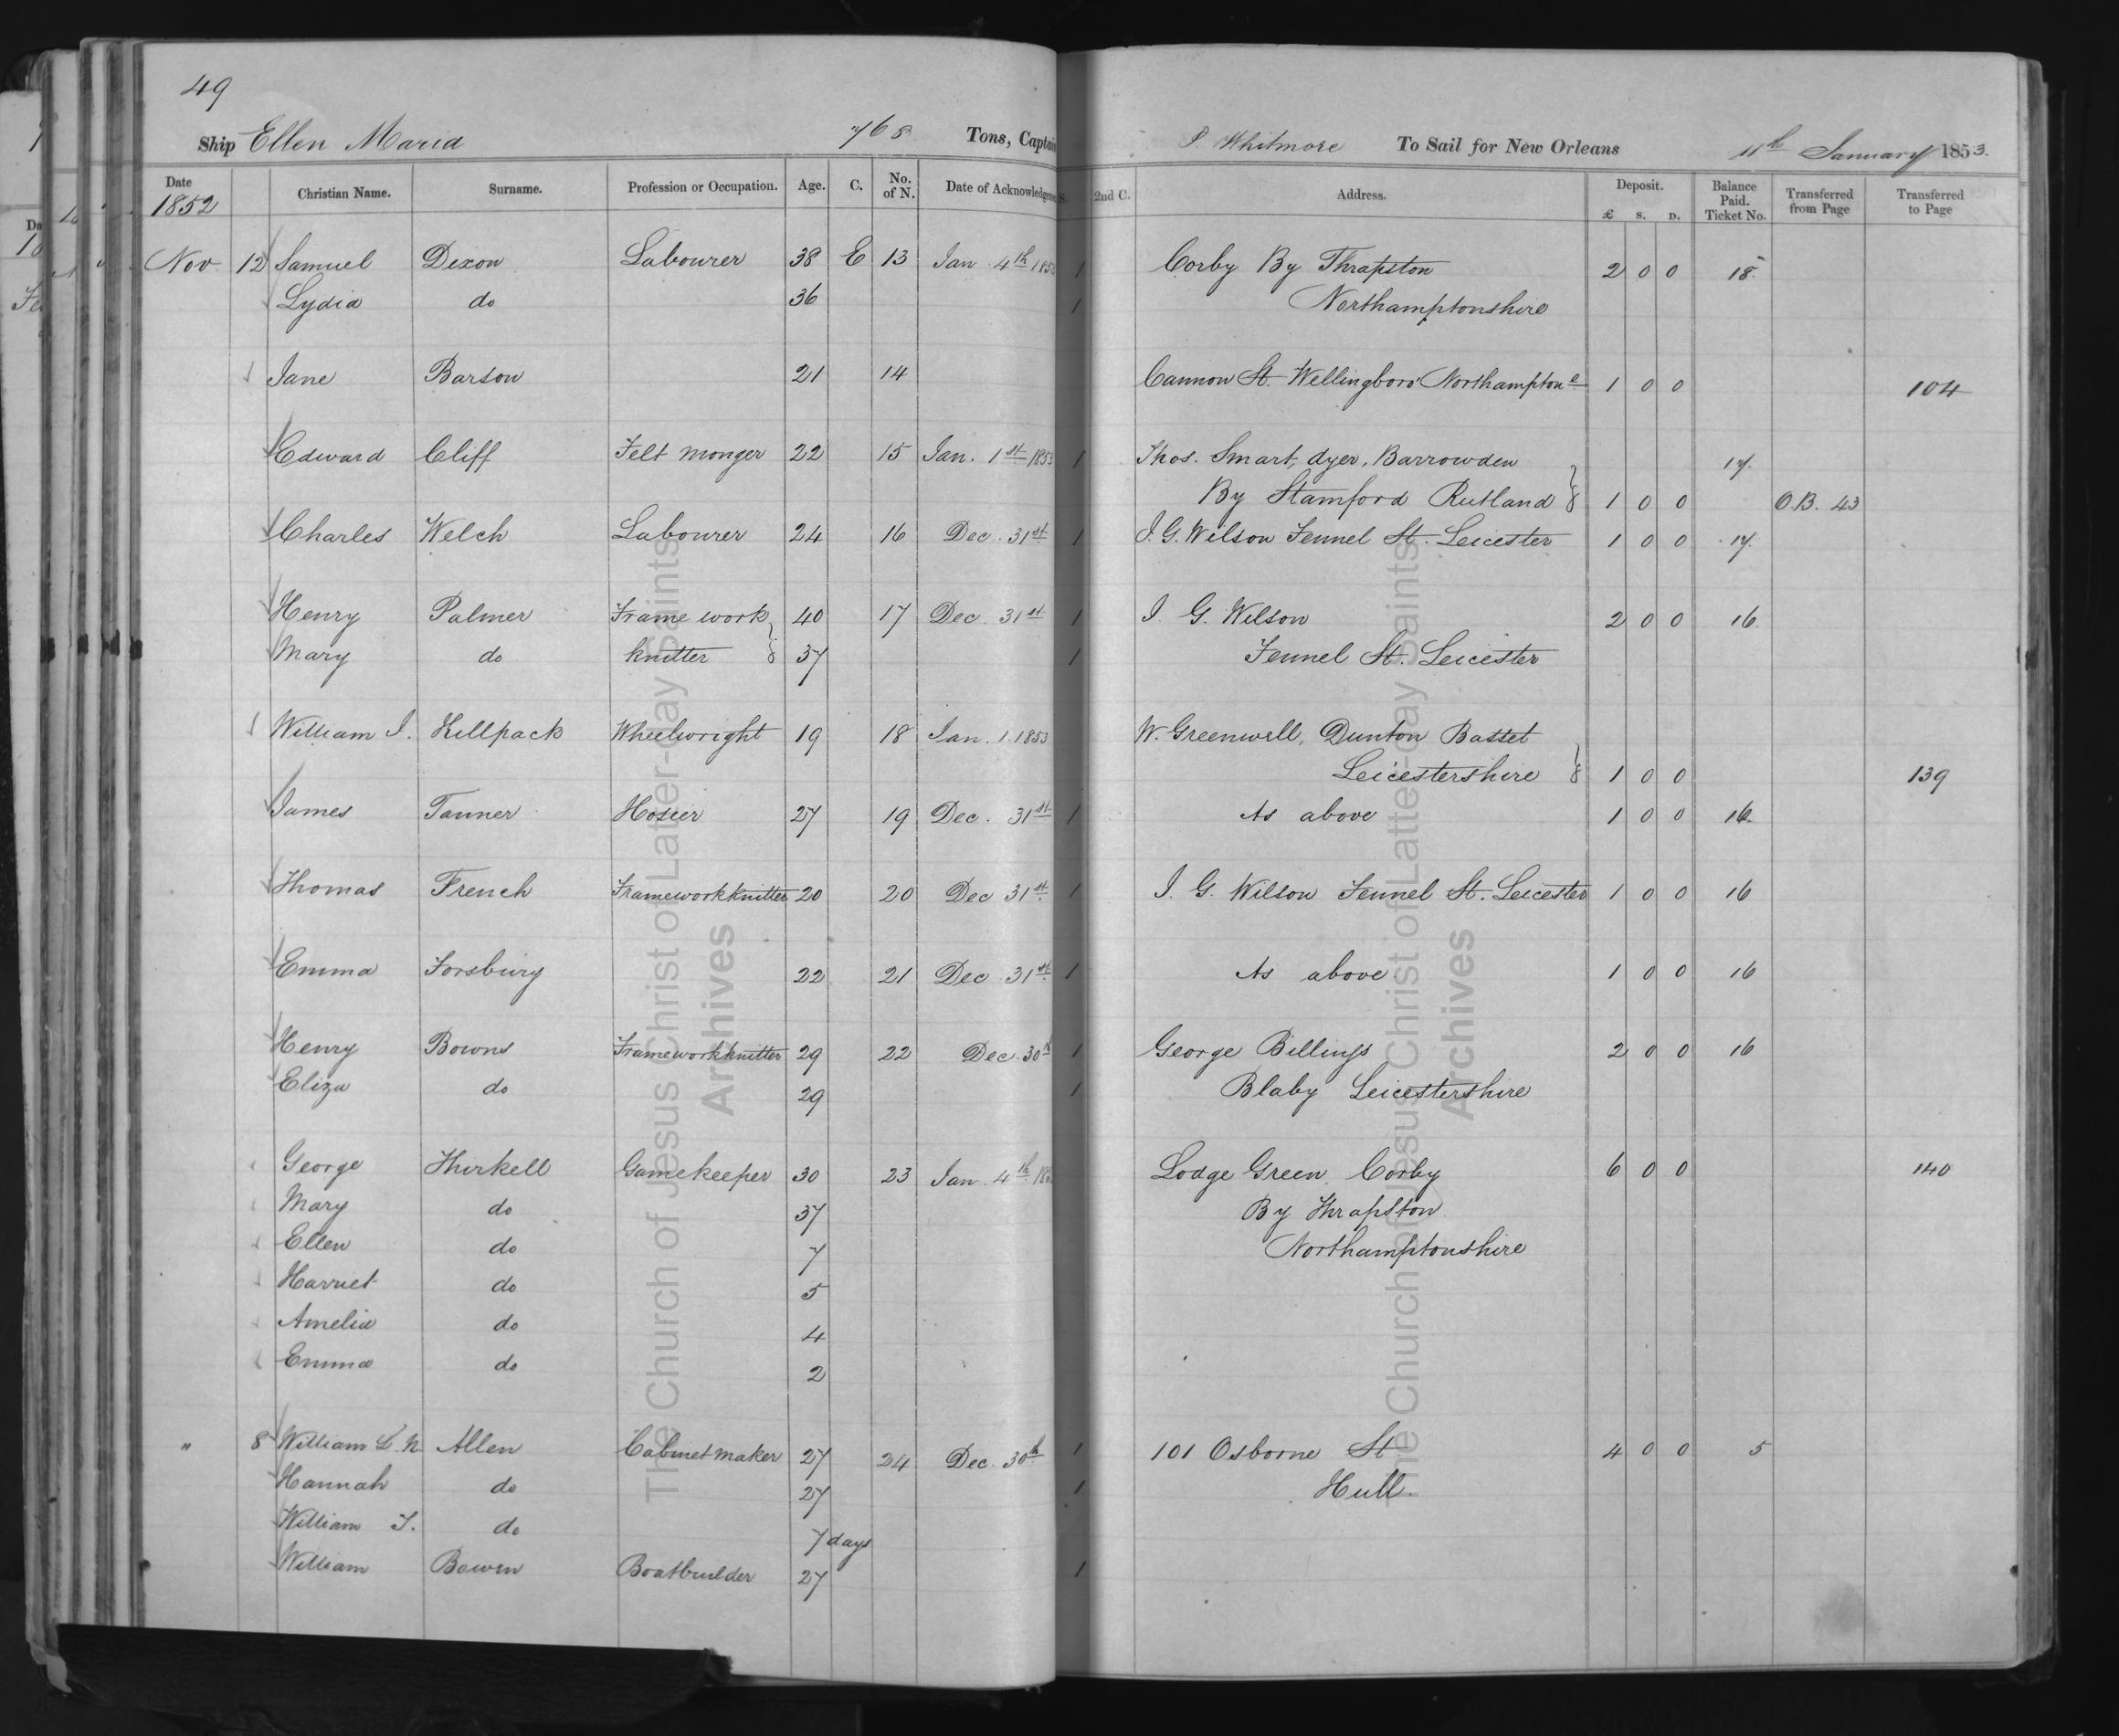 49
Ship Ellen Maria 768 Tons, Captain P. Whitmore To Sail for New Orleans 11th January 1853.
Date 1852 Christian Name. Surname. Profession or Occupation. Age. C. No. of N. Date of Acknowledgmen 2nd C. Address. Deposit. £ S. D. Balance Paid. Ticket No. Transferred from Page Transferred to Page
Nov 12 Samuel Dixon Labourer 38 E 13 Jan 4th 1853 1 Corby By Thrapston 2 0 0 18
Lydia do 36 1 Northamptonshire
Jane Barson 21 14 Cannon St. Wellingboro' Northamptone 1 0 0 104
Edward Cliff Felt monger 22 15 Jan. 1st 1853 1 Thos. Smart, dyer, Barrowden 17.
By Stamford Rutland 1 0 0 O.B. 43
Charles Welch Labourer 24 16 Dec. 31st 1 J. G. Wilson Fennel St. Leicester 1 0 0 17.
Henry Palmer Frame work 40 17 Dec. 31st 1 J. G. Wilson 2 0 0 16.
Mary do knitter 37 1 Fennel St. Leicester
William J. Hillpack Wheelwright 19 18 Jan. 1. 1853 W. Greenwell, Dunton Basset
Leicestershire 1 0 0 139
James Tanner Hosier 27 19 Dec. 31st 1 As above 1 0 0 16.
Thomas French Frameworkknitter 20 20 Dec 31st 1 J. G. Wilson Fennel St. Leicester 1 0 0 16
Emma Forsbury 22 21 Dec 31st 1 As above 1 0 0 16
Henry Bowns Frameworkknitter 29 22 Dec. 30th 1 George Billings 2 0 0 16
Eliza do 29 1 Blaby Leicestershire
George Thirkell Gamekeeper 30 23 Jan 4th 185 Lodge Green Corby 6 0 0 140
Mary do 37 By Thrapston
Ellen do 7 Northamptonshire
Harriet do 5
Amelia do 4
Emma do 2
" 8 William L. N. Allen Cabinet maker 27 24 Dec. 30th 1 101 Osborne St 4 0 0 5
Hannah do 27 1 Hull.
William J. do 7 days
William Bowen Boatbuilder 27 1
The Church of Jesus Christ of Latter-day Saints
Archives
The Church of Jesus Christ of Latter-day Saints
Archives